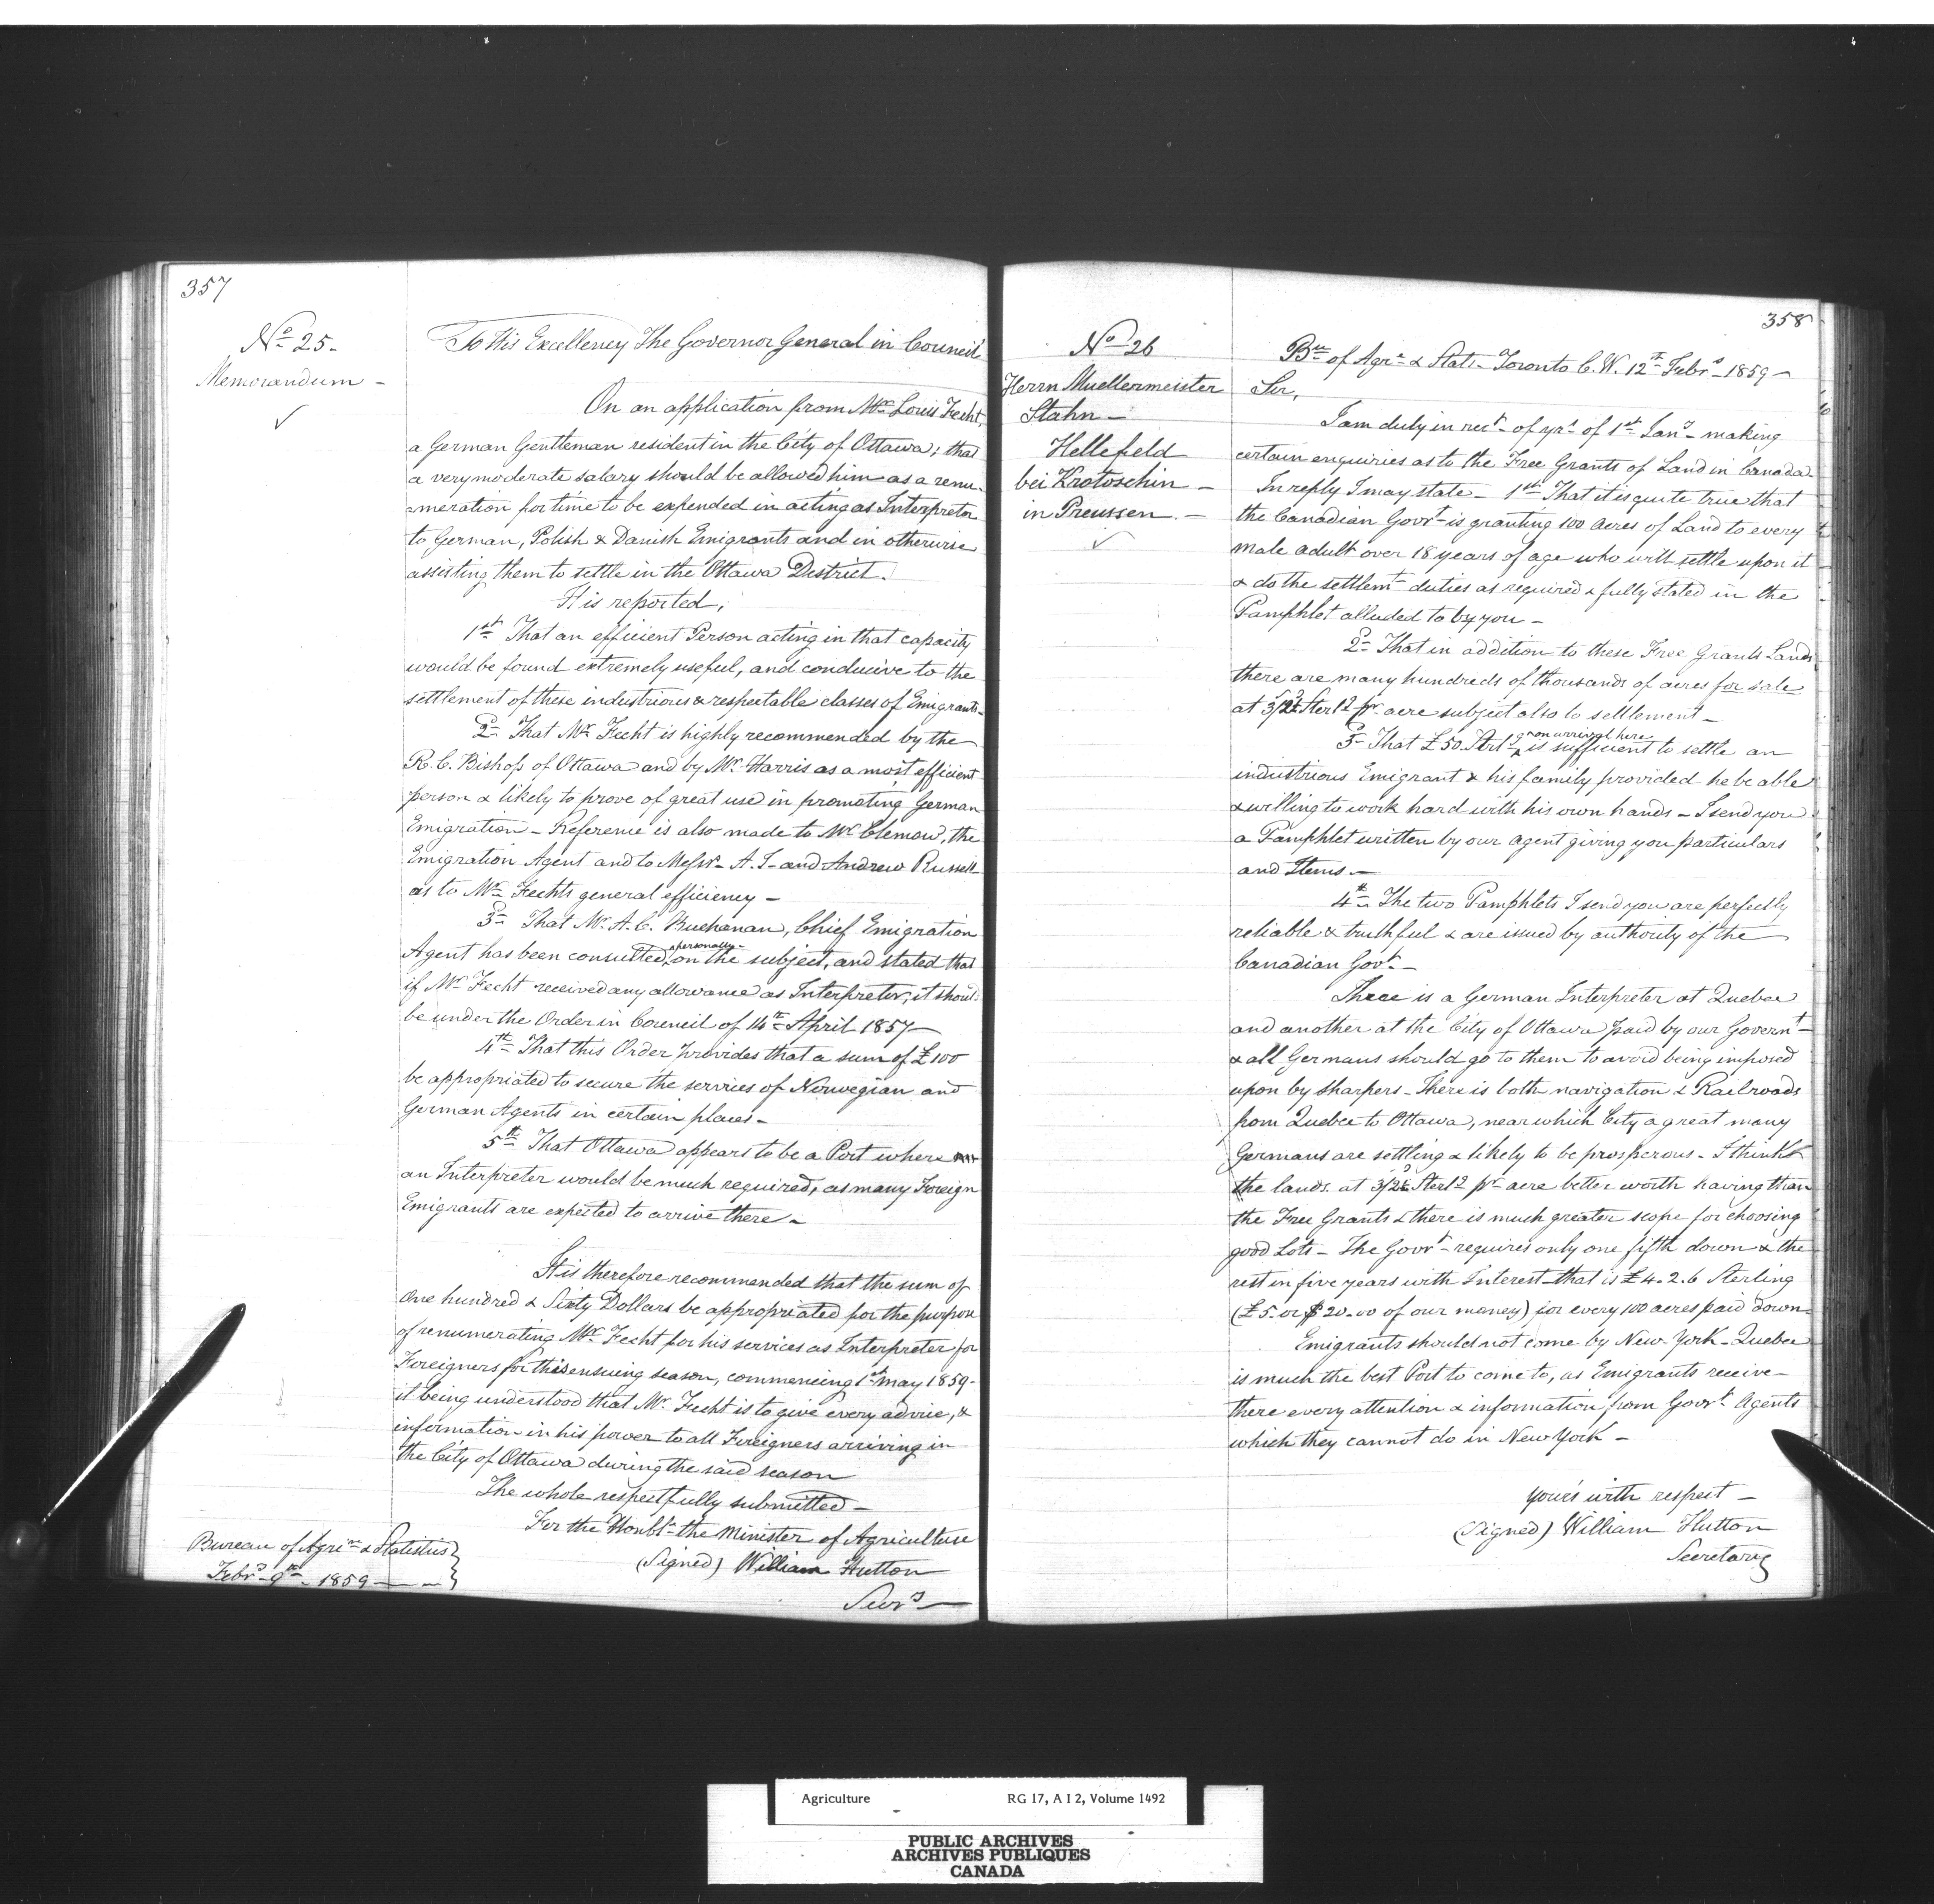 357
No 25.
Memorandum -
To His Excellency The Governor General in Council
On an application from Mr. Louis Fecht,
a German Gentleman resident in the City of Ottawa; that
a very moderate salary should be allowed him as a renu-
-meration for time to be expended in acting as Interpreter
to German, Polish & Danish Emigrants and in otherwise
assisting them to settle in the Ottawa District.
It is reported,
1st That an efficient Person acting in that capacity
would be found extremely useful, and conducive to the
settlement of these industrious & respectable classes of Emigrants-
2d That Mr Fecht is highly recommended by the
R. C. Bishop of Ottawa and by Mr. Harris as a most efficient
person & likely to prove of great use in promoting German
Emigration - Reference is also made to Mr Clemow, the
Emigration Agent and to Messrs- A. J. and Andrew Russell
as to Mr Fechts general efficiency -
3d That Mr. A. C. Buchanan, Chief Emigration
Agent has been consulted personally on the subject, and stated that
if Mr Fecht received any allowance as Interpreter, it should
be under the Order in Council of 14th April 1857-
4th That this Order provides that a sum of £100
be appropriated to secure the services of Norwegian and
German Agents in certain places-
5th That Ottawa appears to be a Port where
an Interpreter would be much required, as many Foreign
Emigrants are expected to arrive there -
It is therefore recommended that the sum of
One hundred & Sixty Dollars be appropriated for the purpose
of renumerating Mr Fecht for his services as Interpreter for
Foreigners for this ensuing season, commencing 1st May 1859-
it being understood that Mr. Fecht is to give every advice, &
information in his power to all Foreigners arriving in
the City of Ottawa during the said season
The whole respectfully submitted -
For the Honble the Minister of Agriculture
(Signed) William Hutton
Secry
Bureau of Agrire & Statistics
Febry 9th- 1859
358
No 26
Herrn Muellermeister
Stahn -
Hellefeld
bei Krotoschin -
in Preussen. -
Bu of Agre & Stats- Toronto C. W. 12th Febry- 1859 -
Sir,
I am duly in rect- of yrs of 1st Jany- making
certain enquiries as to the Free Grants of Land in Canada-
In reply I may state - 1st That it is quite true that
the Canadian Govt- is granting 100 acres of Land to every
male adult over 18 years of age who will settle upon it
& do the settlemt duties as required & fully stated in the
Pamphlet alluded to by you -
2d That in addition to these Free Grants Lands
there are many hundreds of thousands of acres for sale
at 3/2d Sterlg pr acre subject also to settlement -
3d That £50 Sterlg on arrival here is sufficient to settle an
industrious Emigrant & his family provided he be able
& willing to work hard with his own hands - I send you
a Pamphlet written by our agent giving you particulars
and Items. -
4th The two Pamphlets I send you are perfectly
reliable & truthful & are issued by authority of the
Canadian Govt. -
There is a German Interpreter at Quebec
and another at the City of Ottawa paid by our Governt-
& all Germans should go to them to avoid being imposed
upon by sharpers - There is both navigation & Railroads
from Quebec to Ottawa, near which City a great many
Germans are settling & likely to be prosperous - I think
the lands at 3/2d Sterlg pr acre better worth having than
the Free Grants & there is much greater scope for choosing
good Lots - The Govt- requires only one fifth down & the
rest in five years with Interest - that is £4. 2. 6 Sterling
(£5. or $20.00 of our money) for every 100 acres paid down-
Emigrants should not come by New York - Quebec
is much the best Port to come to, as Emigrants receive -
there every attention & information from Govt. Agents
which they cannot do in New York -
Yours with respect -
(Signed) William Hutton
Secretary
Agriculture RG 17, A I 2, Volume 1492
PUBLIC ARCHIVES
ARCHIVES PUBLIQUES
CANADA